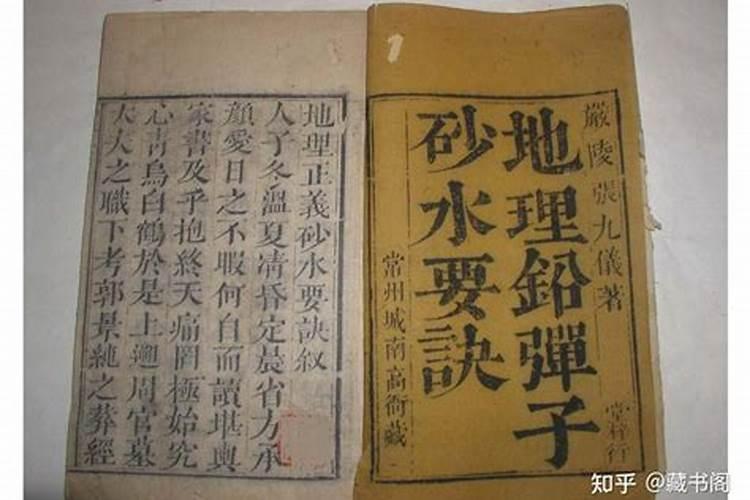 嚴陵張九儀著
地理鉛彈子
砂水要訣
常州城南高衙藏
地理正義砂水要訣叙
人子冬溫夏凊昏定晨省力承
顏愛日之不暇何自而讀堪輿
家書及乎抱終天痛罔極始究
心青烏白鶴於是上遡周官墓
大夫之職下考郭景純之葬經
知乎 @藏书阁